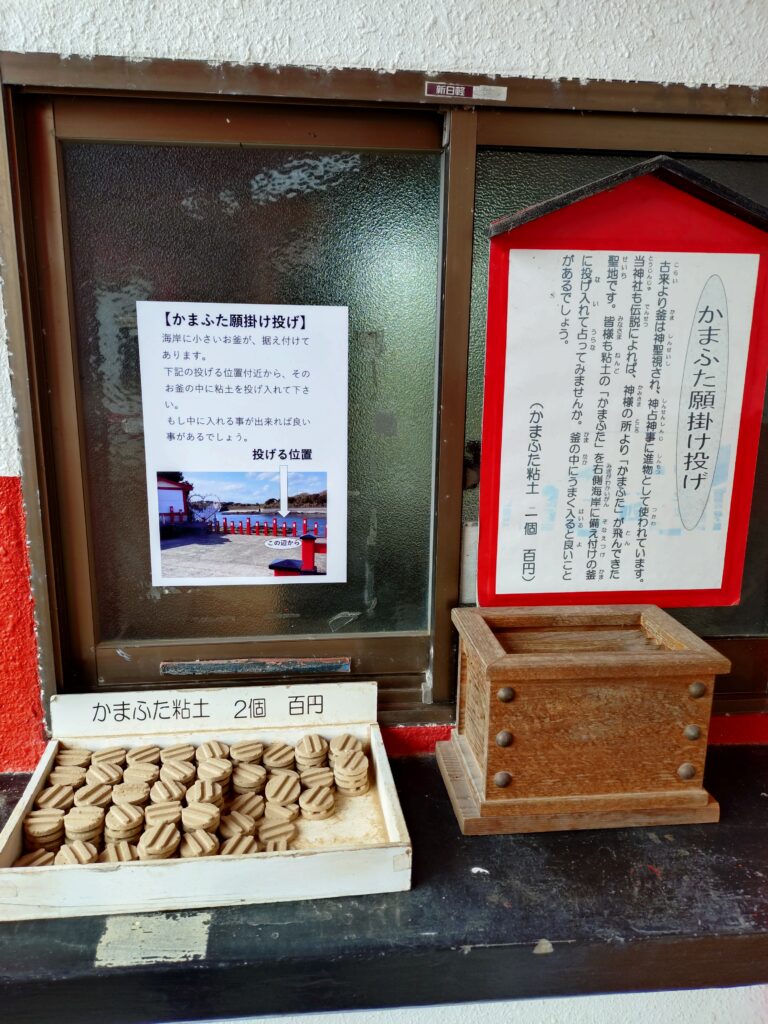 新日軽
【かまふた願掛け投げ】
海岸に小さいお釜が、据え付けて
あります。
下記の投げる位置付近から、その
お釜の中に粘土を投げ入れて下さ
い。
もし中に入れる事が出来れば良い
事があるでしょう。
投げる位置
この辺から
かまふた願掛け投げ
古来より釜は神聖視され、神占神事に進物として使われています。
当神社も伝説によれば、神様の所より「かまふた」が飛んできた
聖地です。皆様も粘土の「かまふた」を右側海岸に備え付けの釜
に投げ入れて占ってみませんか。釜の中にうまく入ると良いこと
があるでしょう。
（かまふた粘土 二個 百円）
かまふた粘土 2個 百円